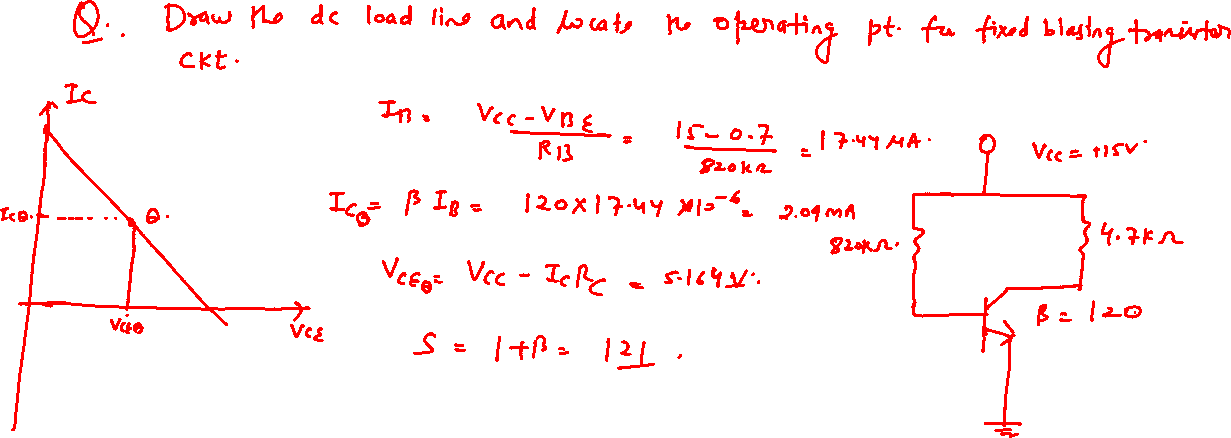 Q. Draw the dc load line and locate the operating pt. for fixed biasing transistor
ckt.
IC
ICQ
Q.
VCEQ
VCE
IB = VCC - VBE / RB = 15 - 0.7 / 820KΩ = 17.44 MA.
ICQ = β IB = 120 X 17.44 X 10^-6 = 2.09 mA
VCEQ = VCC - ICRC = 5.164 V.
S = 1 + β = 121.
VCC = +15V
820KΩ.
4.7KΩ
β = 120